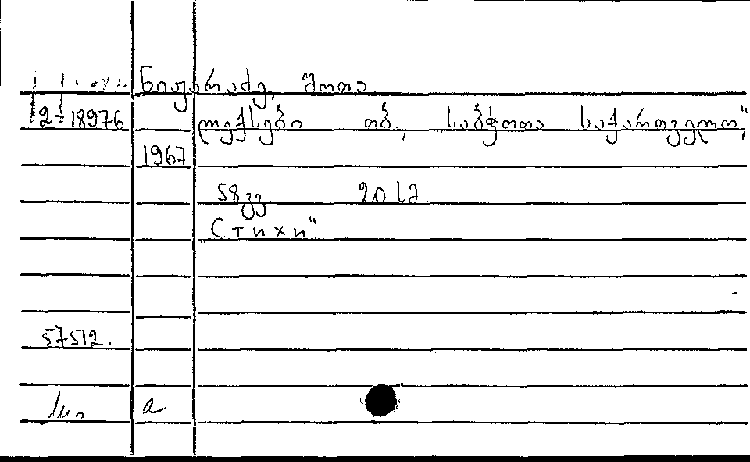 ნიჟარაძე, შოთა
2-18976 ლექსები თბ. საბჭოთა საქართველო,
1967
58 გვ
Стихи"
57512.
a